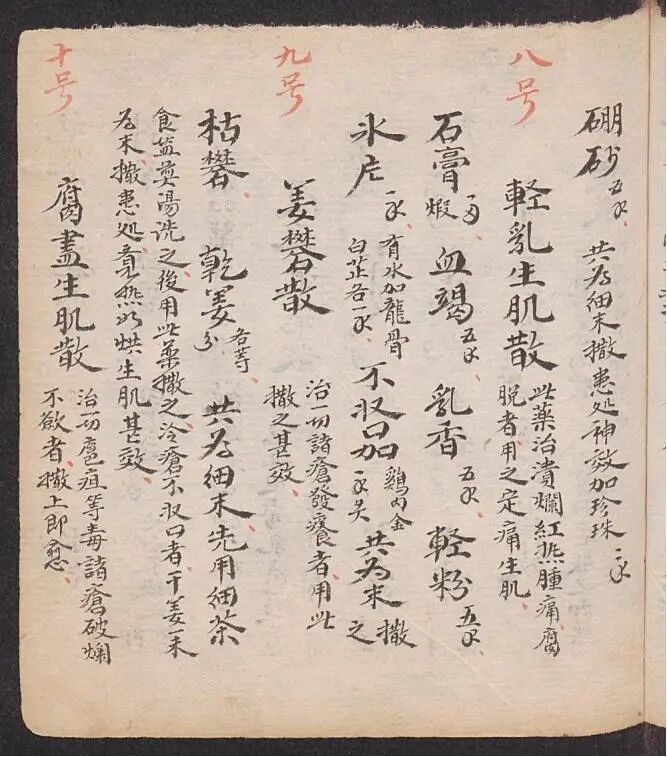 硼砂五錢 共为細末撒患処神效加珍珠一錢
八号
軽乳生肌散 此薬治潰爛紅热腫痛腐
脱者用之定痛生肌
石膏煆一两 血竭五錢 乳香五錢 軽粉五錢
氷片一錢 有水加龍骨
白芷各一錢 不収口加 鷄内金
一錢炙 共为末撒之
九号
姜礬散 治一切諸瘡發癢者用此
撒之甚效
枯礬 乾姜各等分 共为細末先用細茶
食盐煎湯洗之後用此薬撒之冷瘡不収口者干姜一味
为末撒患処覚热如烘生肌甚效
十号
腐盡生肌散 治一切癰疽等毒諸瘡破爛
不歛者撒上即愈